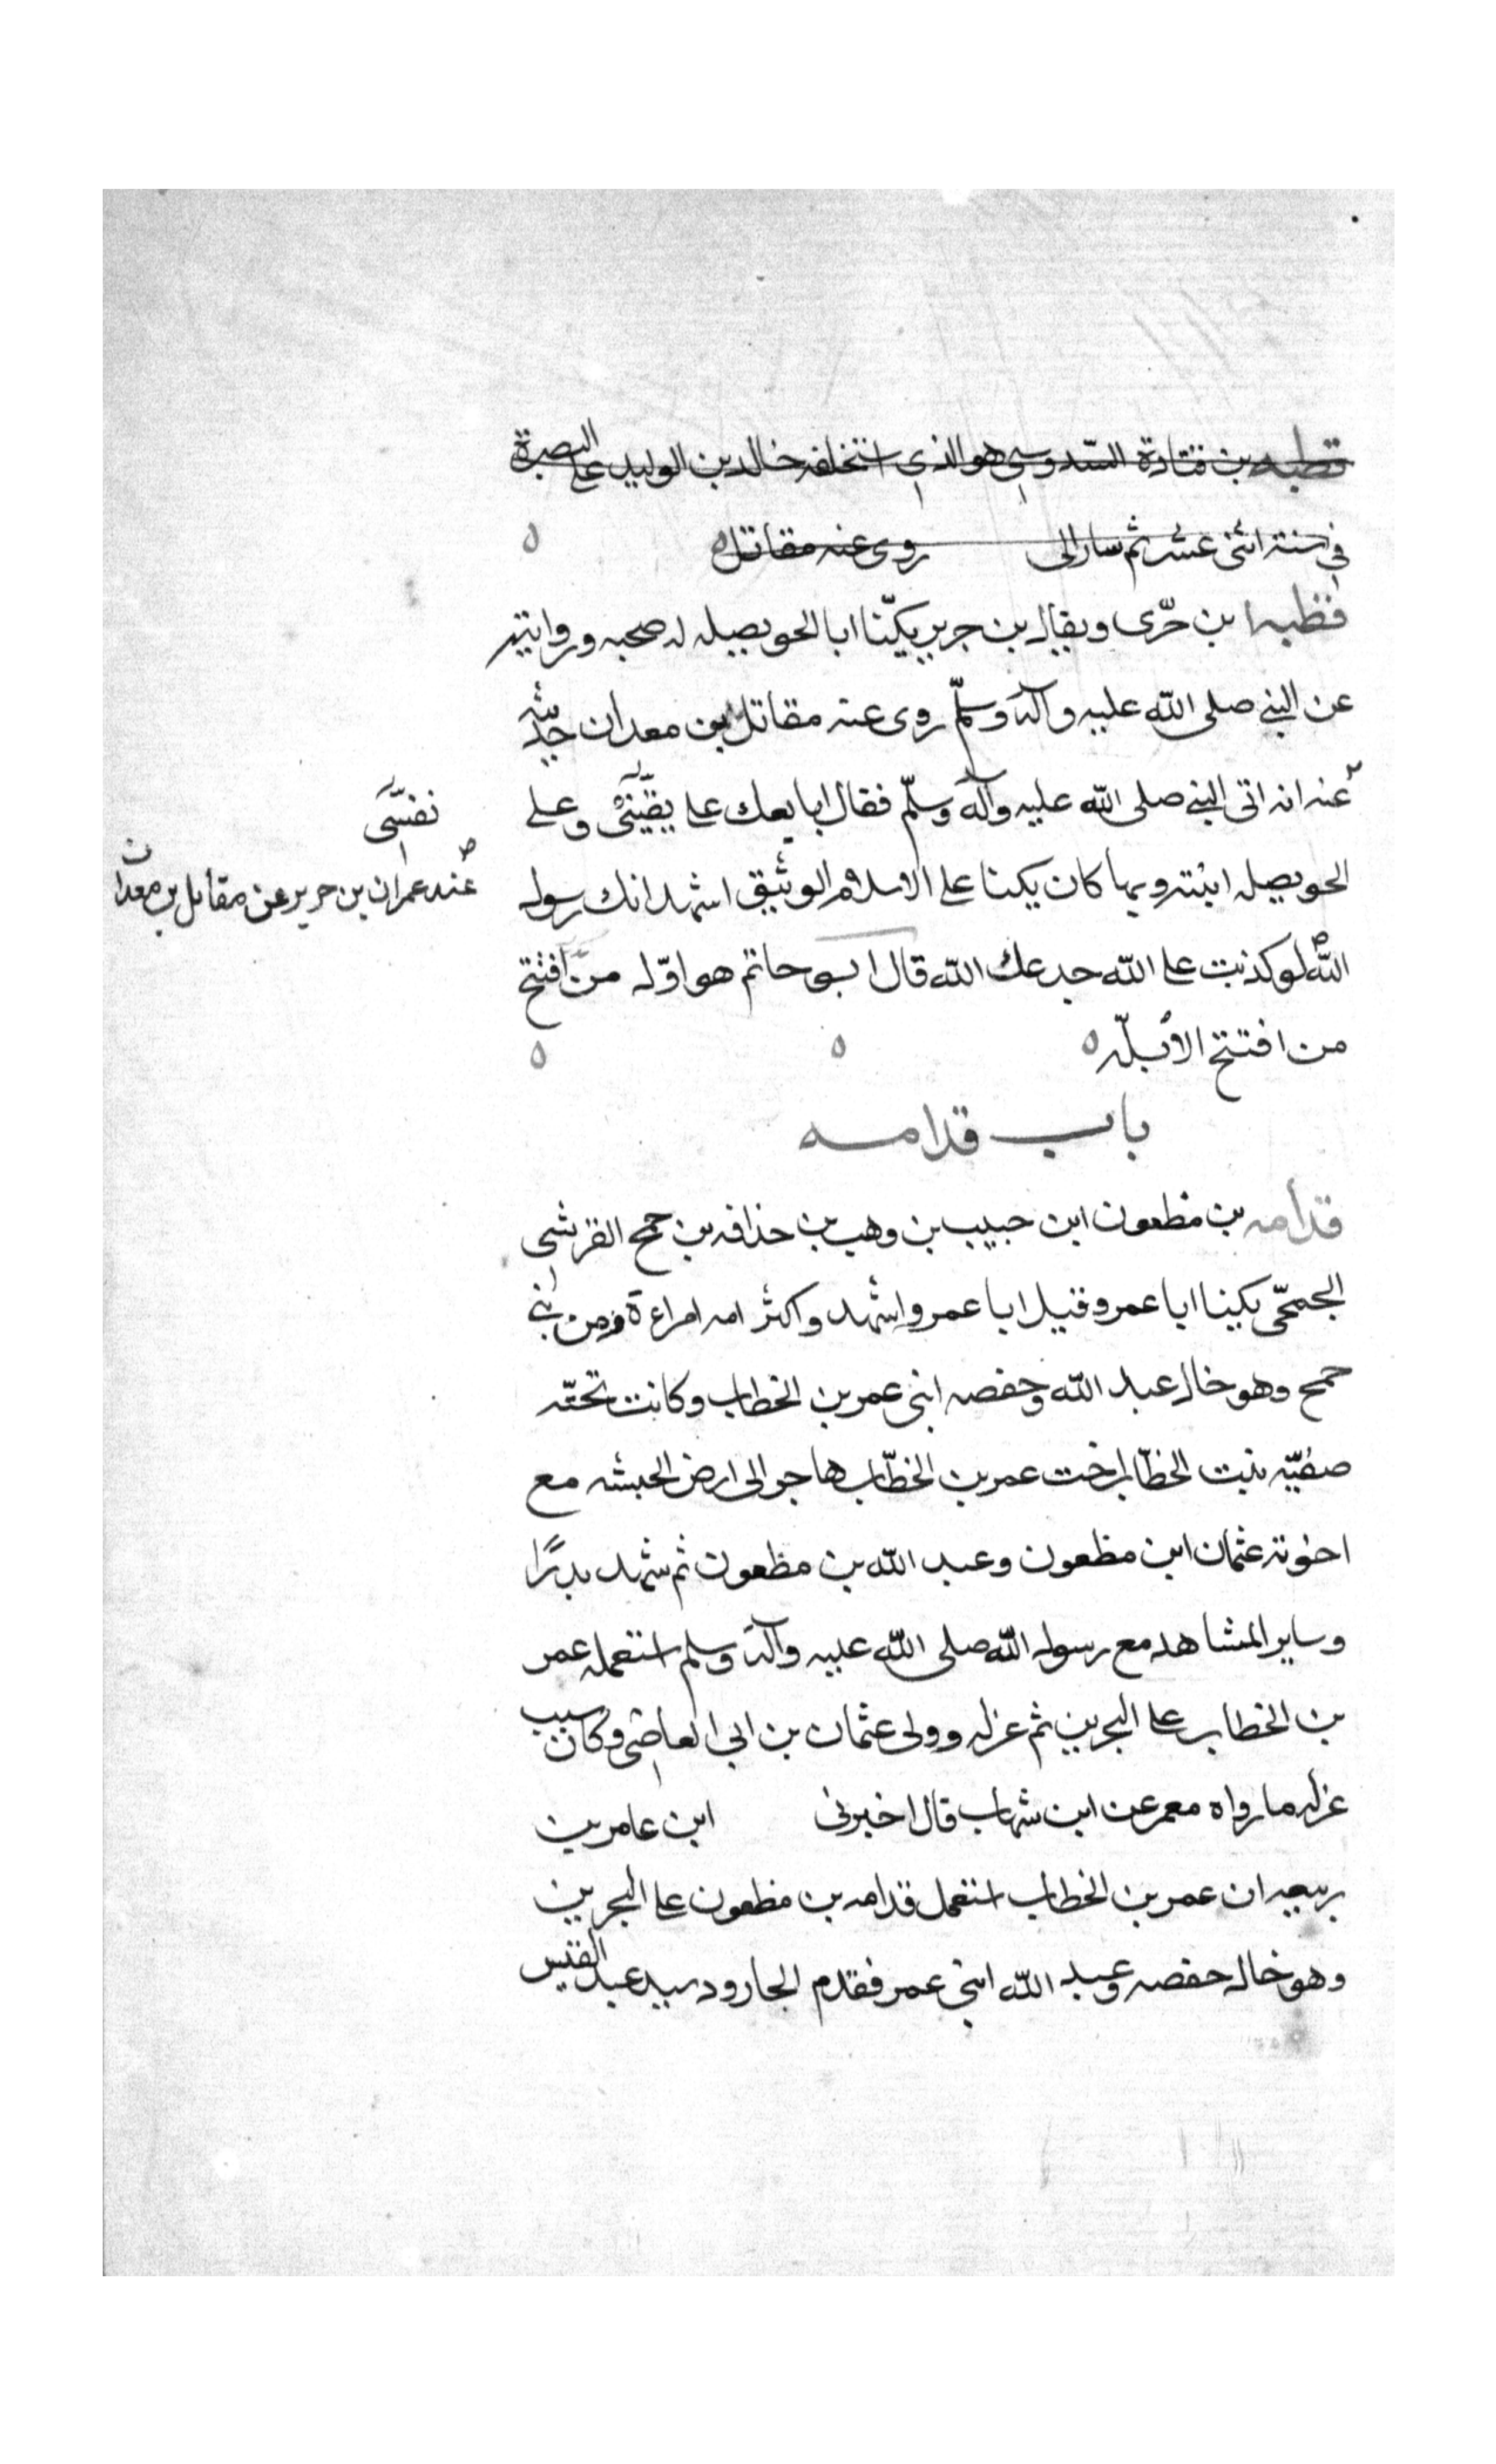 قطبه بن قتادة السّدوسي هو الذي استخلفه خالد بن الوليد على البصرة
في سنة اثني عشر ثم سار الى روى عنه مقاتل ه ه
قطبه ابن حرّى ويقال بن جرير يكنّا ابا الحويصله له صحبه وروايته
عن النبي صلى الله عليه وآله وسلّم روى عنه مقاتل بن معدان حديثه
عنه انه اتى النبي صلى الله عليه وآله وسلّم فقال ابايعك على وعلى
نفسى
الحويصله ابنته وبها كان يكنا على الاسلام الوثيق اشهد انك رسول
عنه عمران بن حرير عن مقاتل بن معدان
الله لو كذبت على الله جدعك الله قال ابو حاتم هو اوّل من افتتح
من افتتح الأبلّه ه ه ه
باب قدامه
قدامه بن مظعون ابن حبيب بن وهب بن حذافه بن جمح القرشي
الجمحّى يكينا ابا عمرو قيل ابا عمر واشهد واكثر امه امراءة من بني
جمح وهو خال عبد الله وحفصه ابنى عمر بن الخطاب وكانت تحته
صفيّه بنت الخطّاب اخت عمر بن الخطّاب هاجر الى ارض الحبشه مع
اخوته عثمان ابن مظعون وعبد الله بن مظعون ثم شهد بدرًا
وساير المشاهد مع رسول الله صلى الله عليه وآله وسلم استعمله عمر
بن الخطاب على البحرين ثم عزله وولى عثمان بن ابي العاصى وكان سبب
عزله ما رواه معمر عن ابن شهاب قال اخبرنى ابن عامر بن
ربيعه ان عمر بن الخطاب استعمل قدامه بن مظعون على البحرين
وهو خال حفصه وعبد الله ابني عمر فقدم الجارود سيد عبد القيس